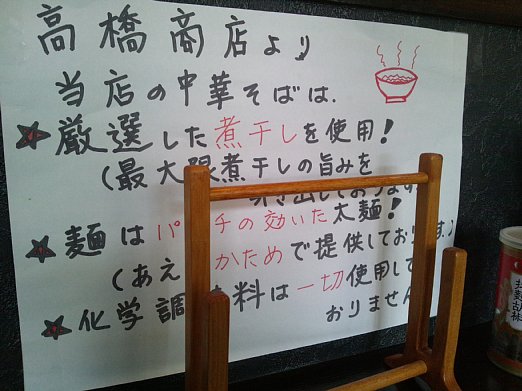 高橋商店より
当店の中華そばは、
★厳選した煮干しを使用!
(最大限煮干しの旨みを
き出しております
★麺はパ チの効いた太麺!
(あえ かためで提供しております。)
★化学調 料は一切使用して
おりません